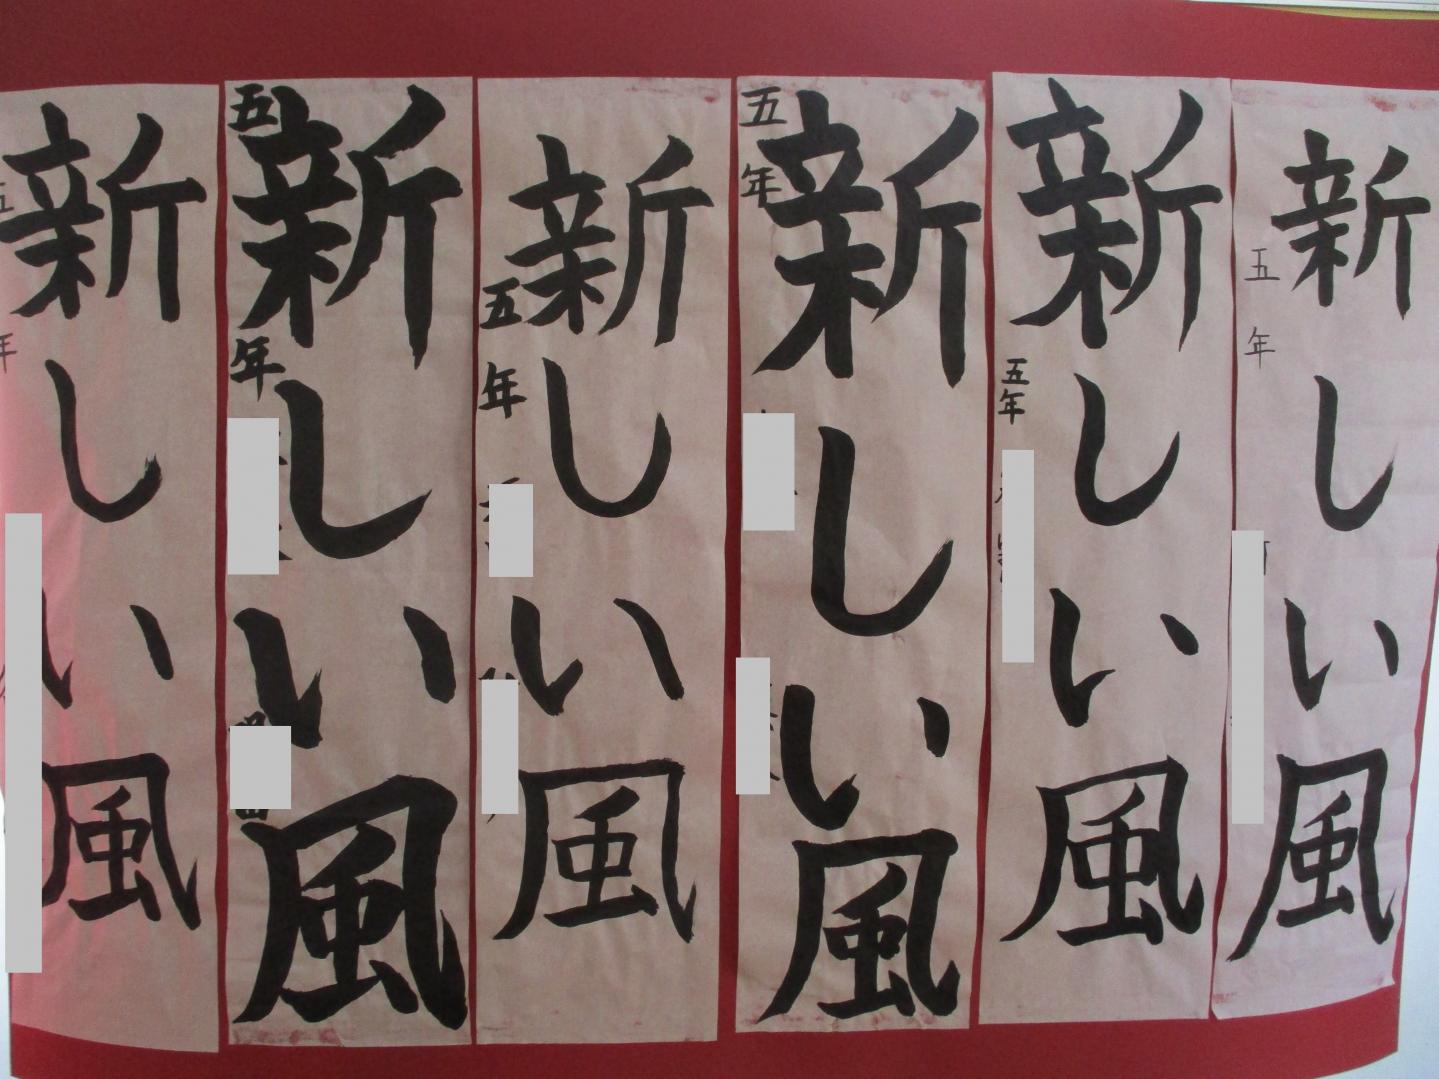 新しい風
五年
新しい風
五年
新しい風
五年
新しい風
五年
新しい風
五年
新しい風
五年